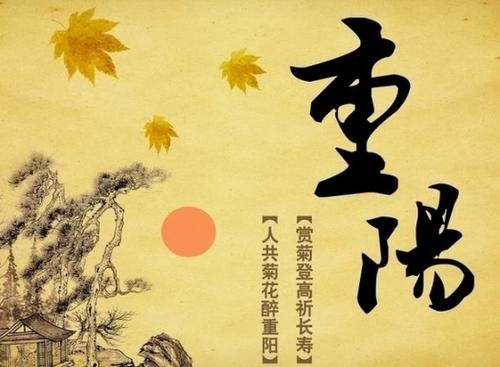 重陽
【赏菊登高祈长寿】
【人共菊花醉重阳】